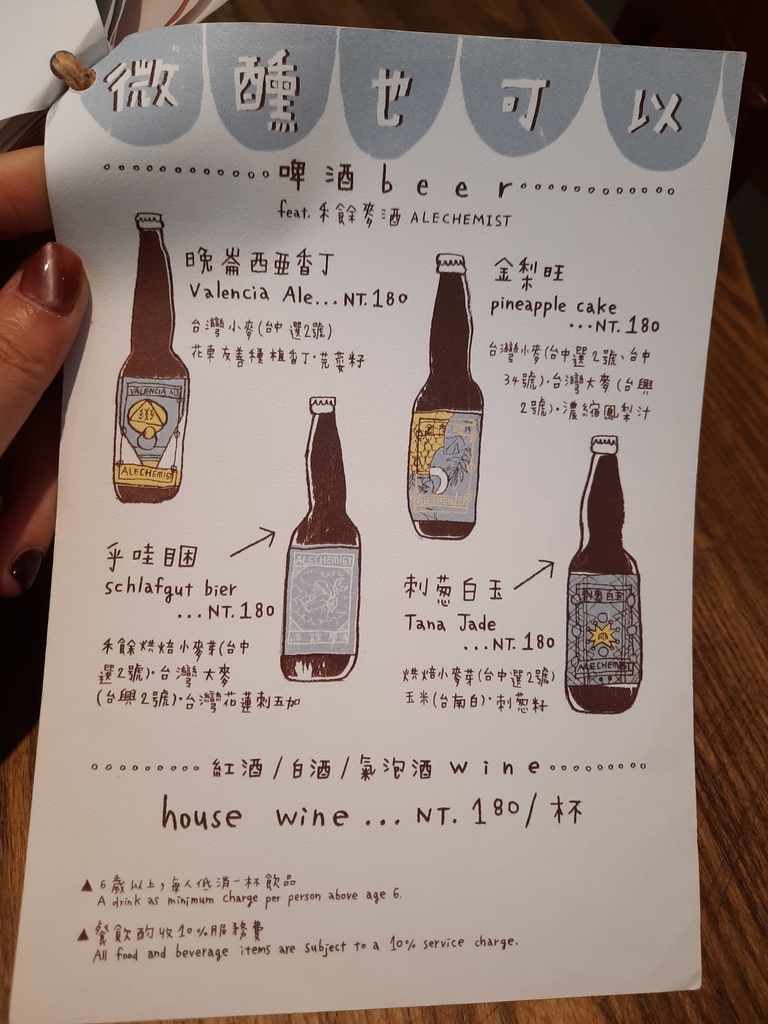 微醺也可以
啤酒 beer
feat. 禾餘麥酒 ALECHEMIST
晚崙西亞香丁
Valencia Ale...NT.180
台灣小麥(台中選2號)
花東友善種植香丁·芫荽籽
VALENCIA ALE
ALECHEMIST
金梨旺
pineapple cake
...NT.180
台灣小麥(台中選2號、台中
34號)·台灣大麥(台興
2號)·濃縮鳳梨汁
ALECHEMIST
乎哇睏
schlafgut bier
...NT.180
禾餘烘焙小麥芽(台中
選2號)·台灣大麥
(台興2號)·台灣花蓮刺五加
ALECHEMIST
刺葱白玉
Tana Jade
...NT.180
烘焙小麥芽(台中選2號)
玉米(台南白)·刺葱籽
刺葱白玉
ALECHEMIST
紅酒/白酒/氣泡酒 wine
house wine...NT.180/杯
▲6歲以上,每人低消一杯飲品
A drink as minimum charge per person above age 6.
▲餐飲酌收10%服務費
All food and beverage items are subject to a 10% service charge.